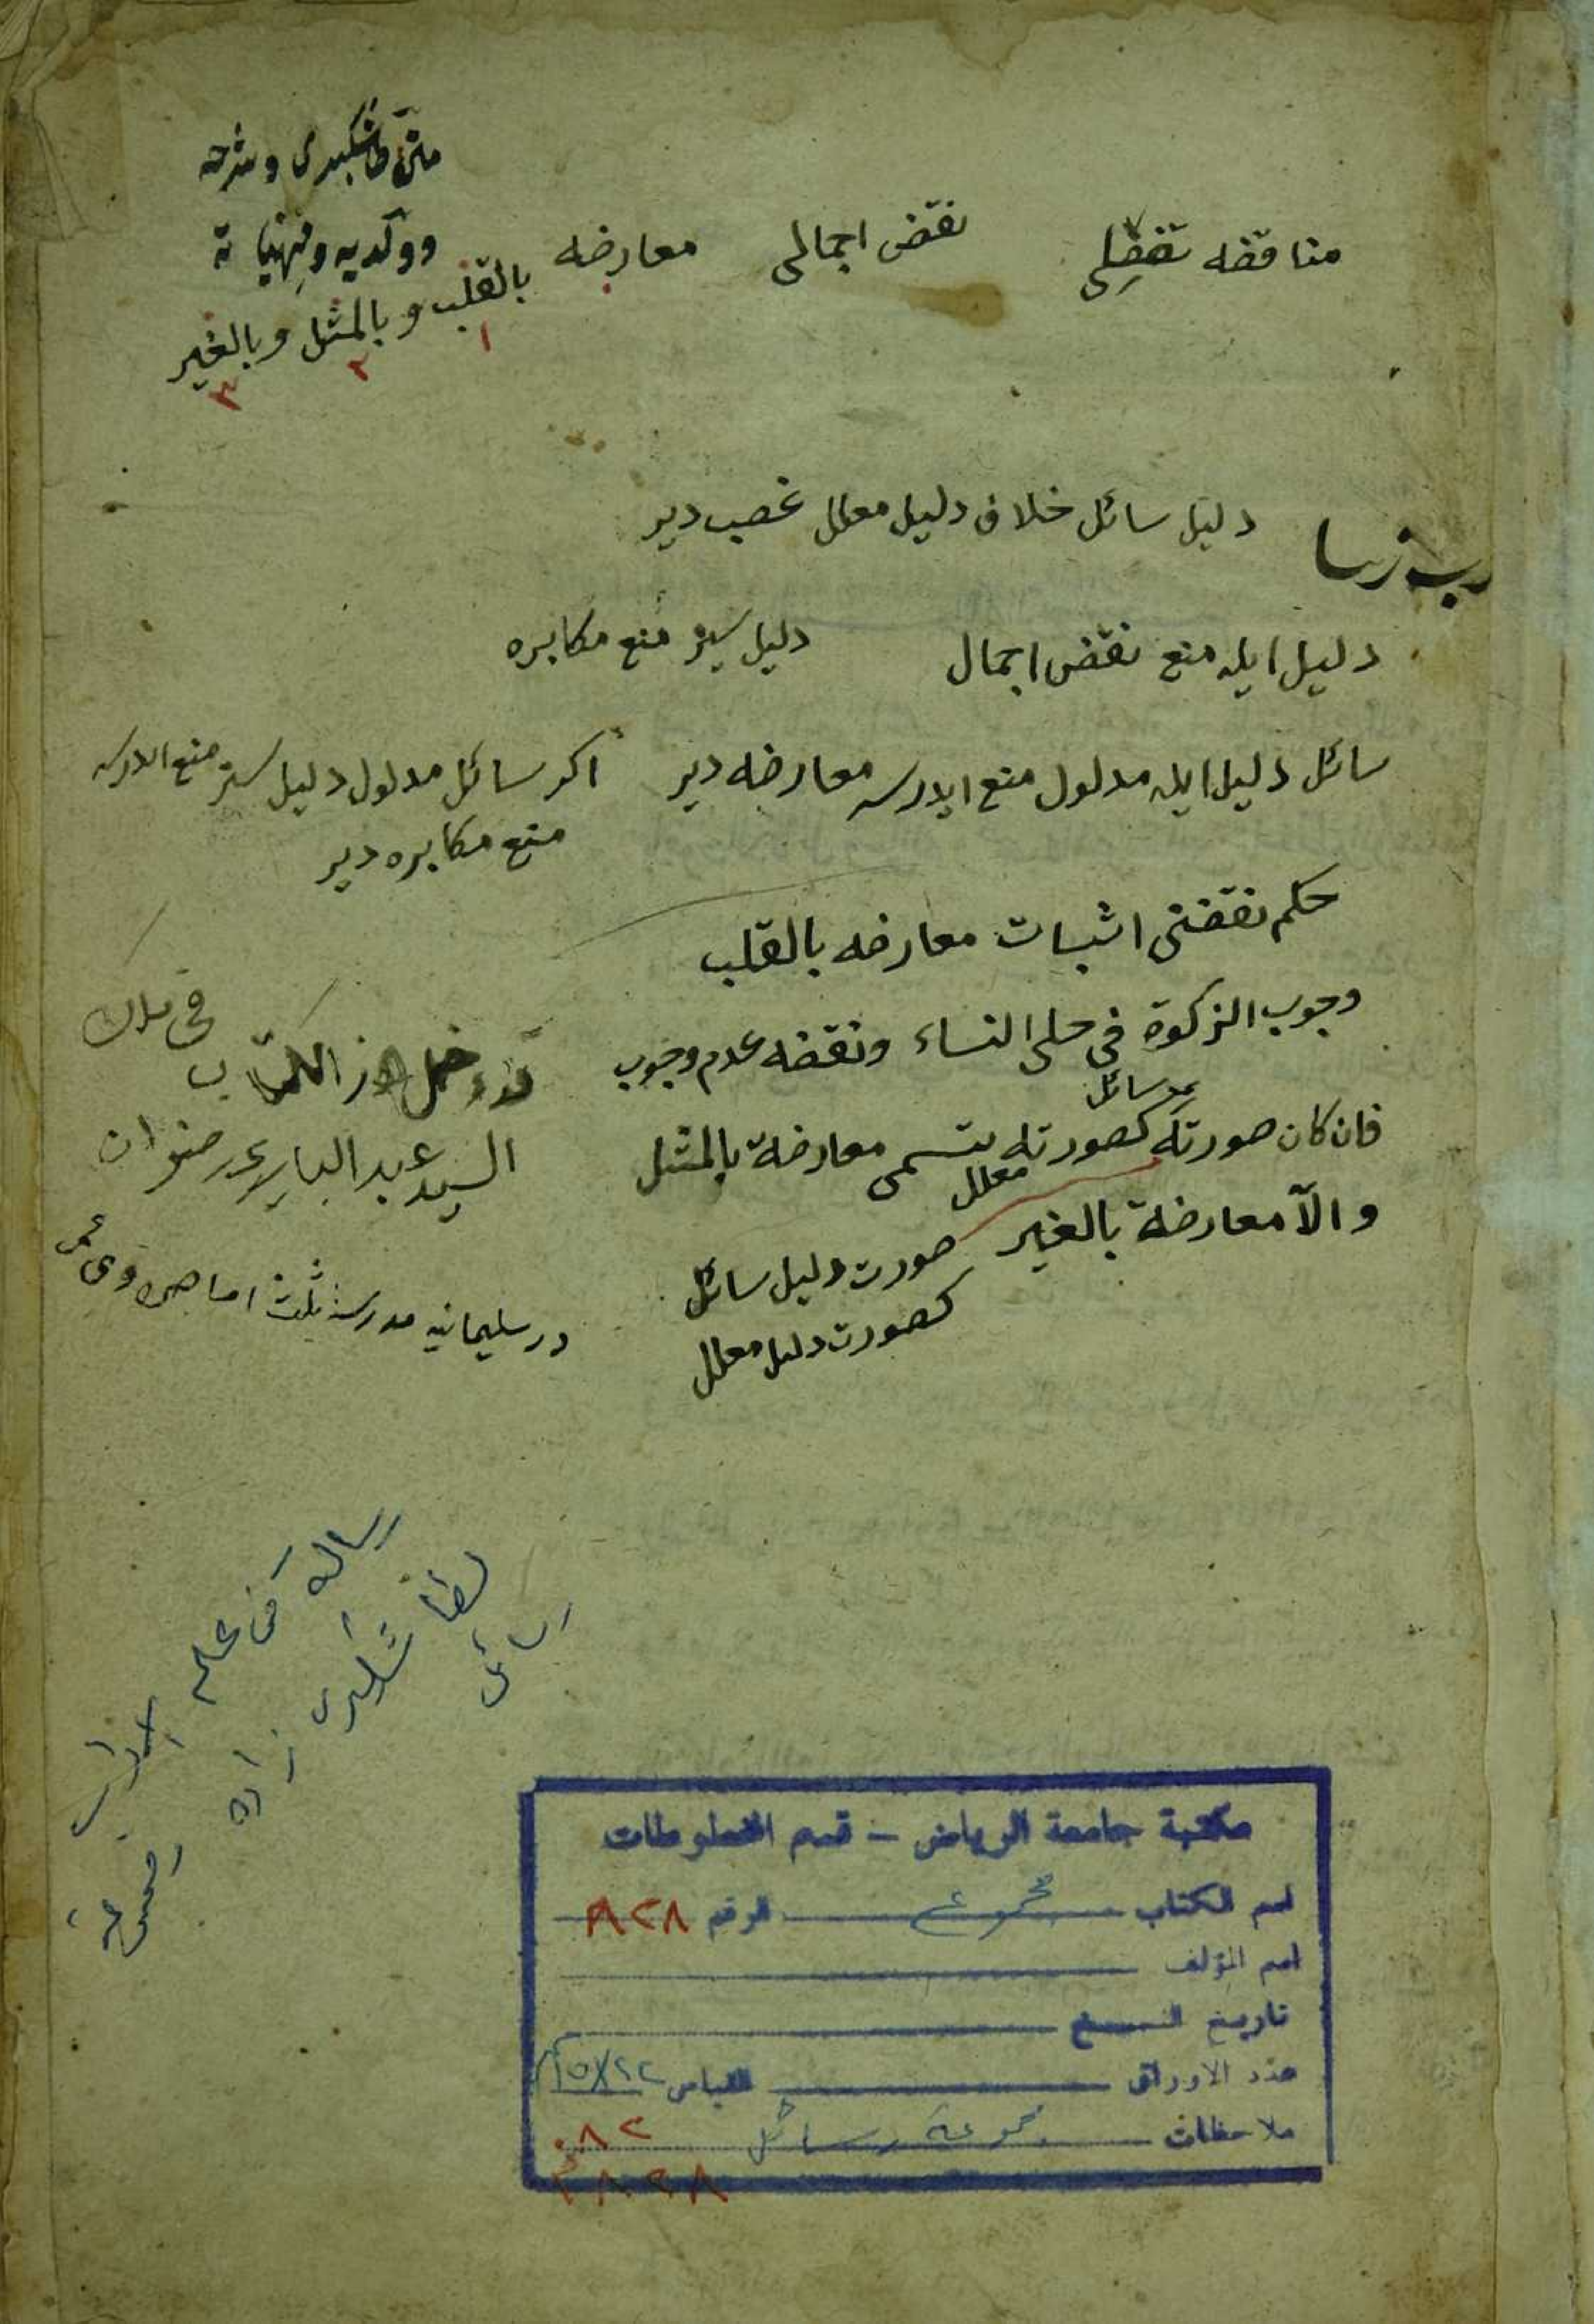 متن طاشكبرى وشرحه
مناقضه تفضلى نقض اجمالى معارضه
بالقلب و بالمثل و بالغير
١ ٢ ٣
دليل سائل خلاف دليل معلل غصب دير
دليل ايله منع نقض اجمال دليل سيز منع مكابره
سائل دليل ايله مدلول منع ايدرسه معارضه دير اكر سائل مدلول دليل سز منع ايدرسه
منع مكابره دير
حكم نقضنى اثبات معارضه بالقلب
وجوب الزكوة فى حلى النساء ونقضه عدم وجوب
سائل
فان كان صورته كصورته تسمى معارضة بالمثل
معلل
والآ معارضة بالغير صورت دليل سائل
كصورت دليل معلل
قد دخل هذا الكتاب فى ملك
السيد عبد البارى
در سليمانيه مدرسه
رسالة فى علم الآداب
لطاشكبرى زاده
رسائل
مكتبة جامعة الرياض - قسم المخطوطات
اسم الكتاب مجموع الرقم ٢٨٢٨
اسم المؤلف
تاريخ النسخ
عدد الاوراق القياس
ملاحظات مجموعة رسائل
٢٨٢٨